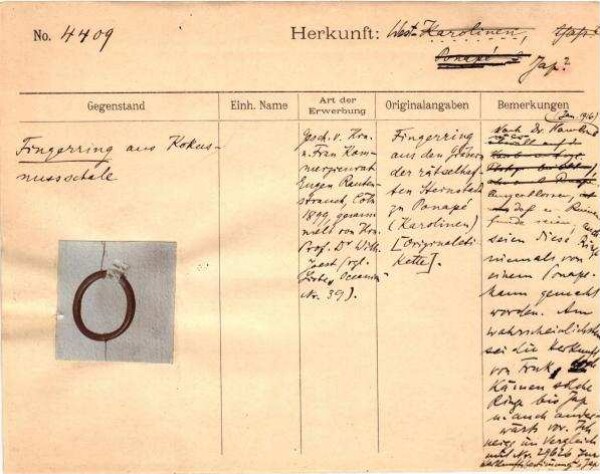 No. 4409
Herkunft: West-Karolinen, Yap?
Ponapé? Jap?
Gegenstand
Einh. Name
Art der Erwerbung
Originalangaben
Bemerkungen
Fingerring aus Kokus-
nussschale
Gesch. v. Hrn.
u. Frau Kom-
merzienrat
Eugen Rauten-
strauch, Cöln
1899, gesam-
melt von Hrn.
Prof. Dr Wilh.
Joest (vgl.
Oceanien
Nr. 39).
Fingerring
aus den Gräbern
der rätselhaf-
ten Steinstadt
zu Ponapé
(Karolinen)
[Originaleti-
kette].
(Jan. 1916)
Nach Dr.
seien diese Ringe
niemals von
einem Ponape-
mann gemacht
worden. Am
wahrscheinlichsten
sei die Herkunft
von Truk,
kämen solche
Ringe bis Jap
u. auch ander-
wärts vor. Ich
im Vergleich
mit Nr. 29626